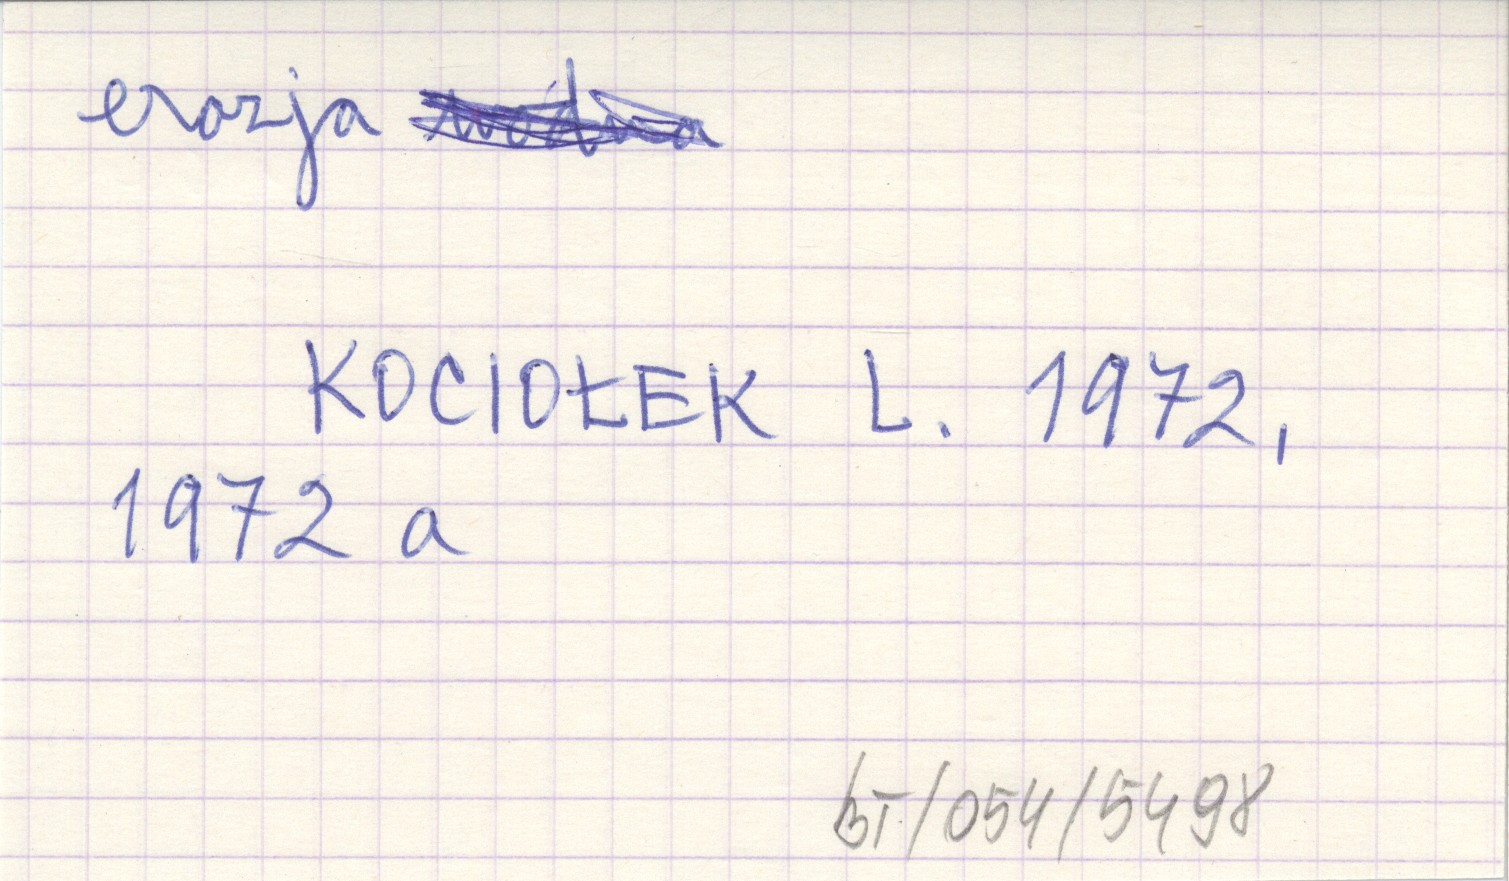 erozja
KOCIOŁEK L. 1972,
1972 a
BT/054/5498